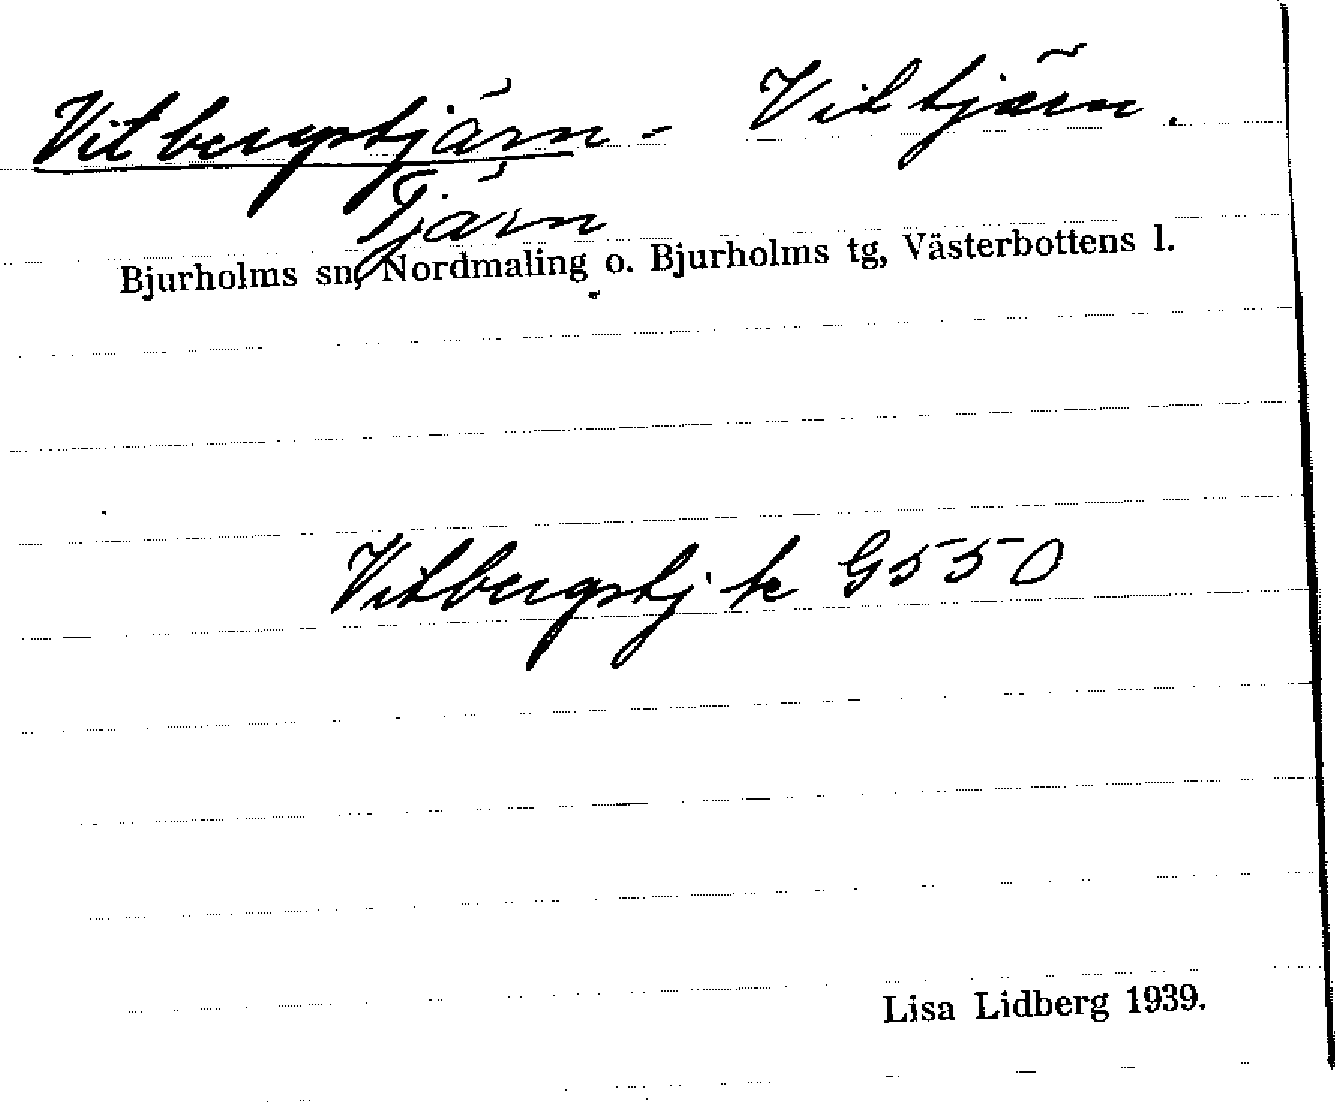 Vitbergstjärn - Vittjärn.
Tjärn
Bjurholms sn, Nordmaling o. Bjurholms tg, Västerbottens l.
Vitbergstj k G550
Lisa Lidberg 1939.